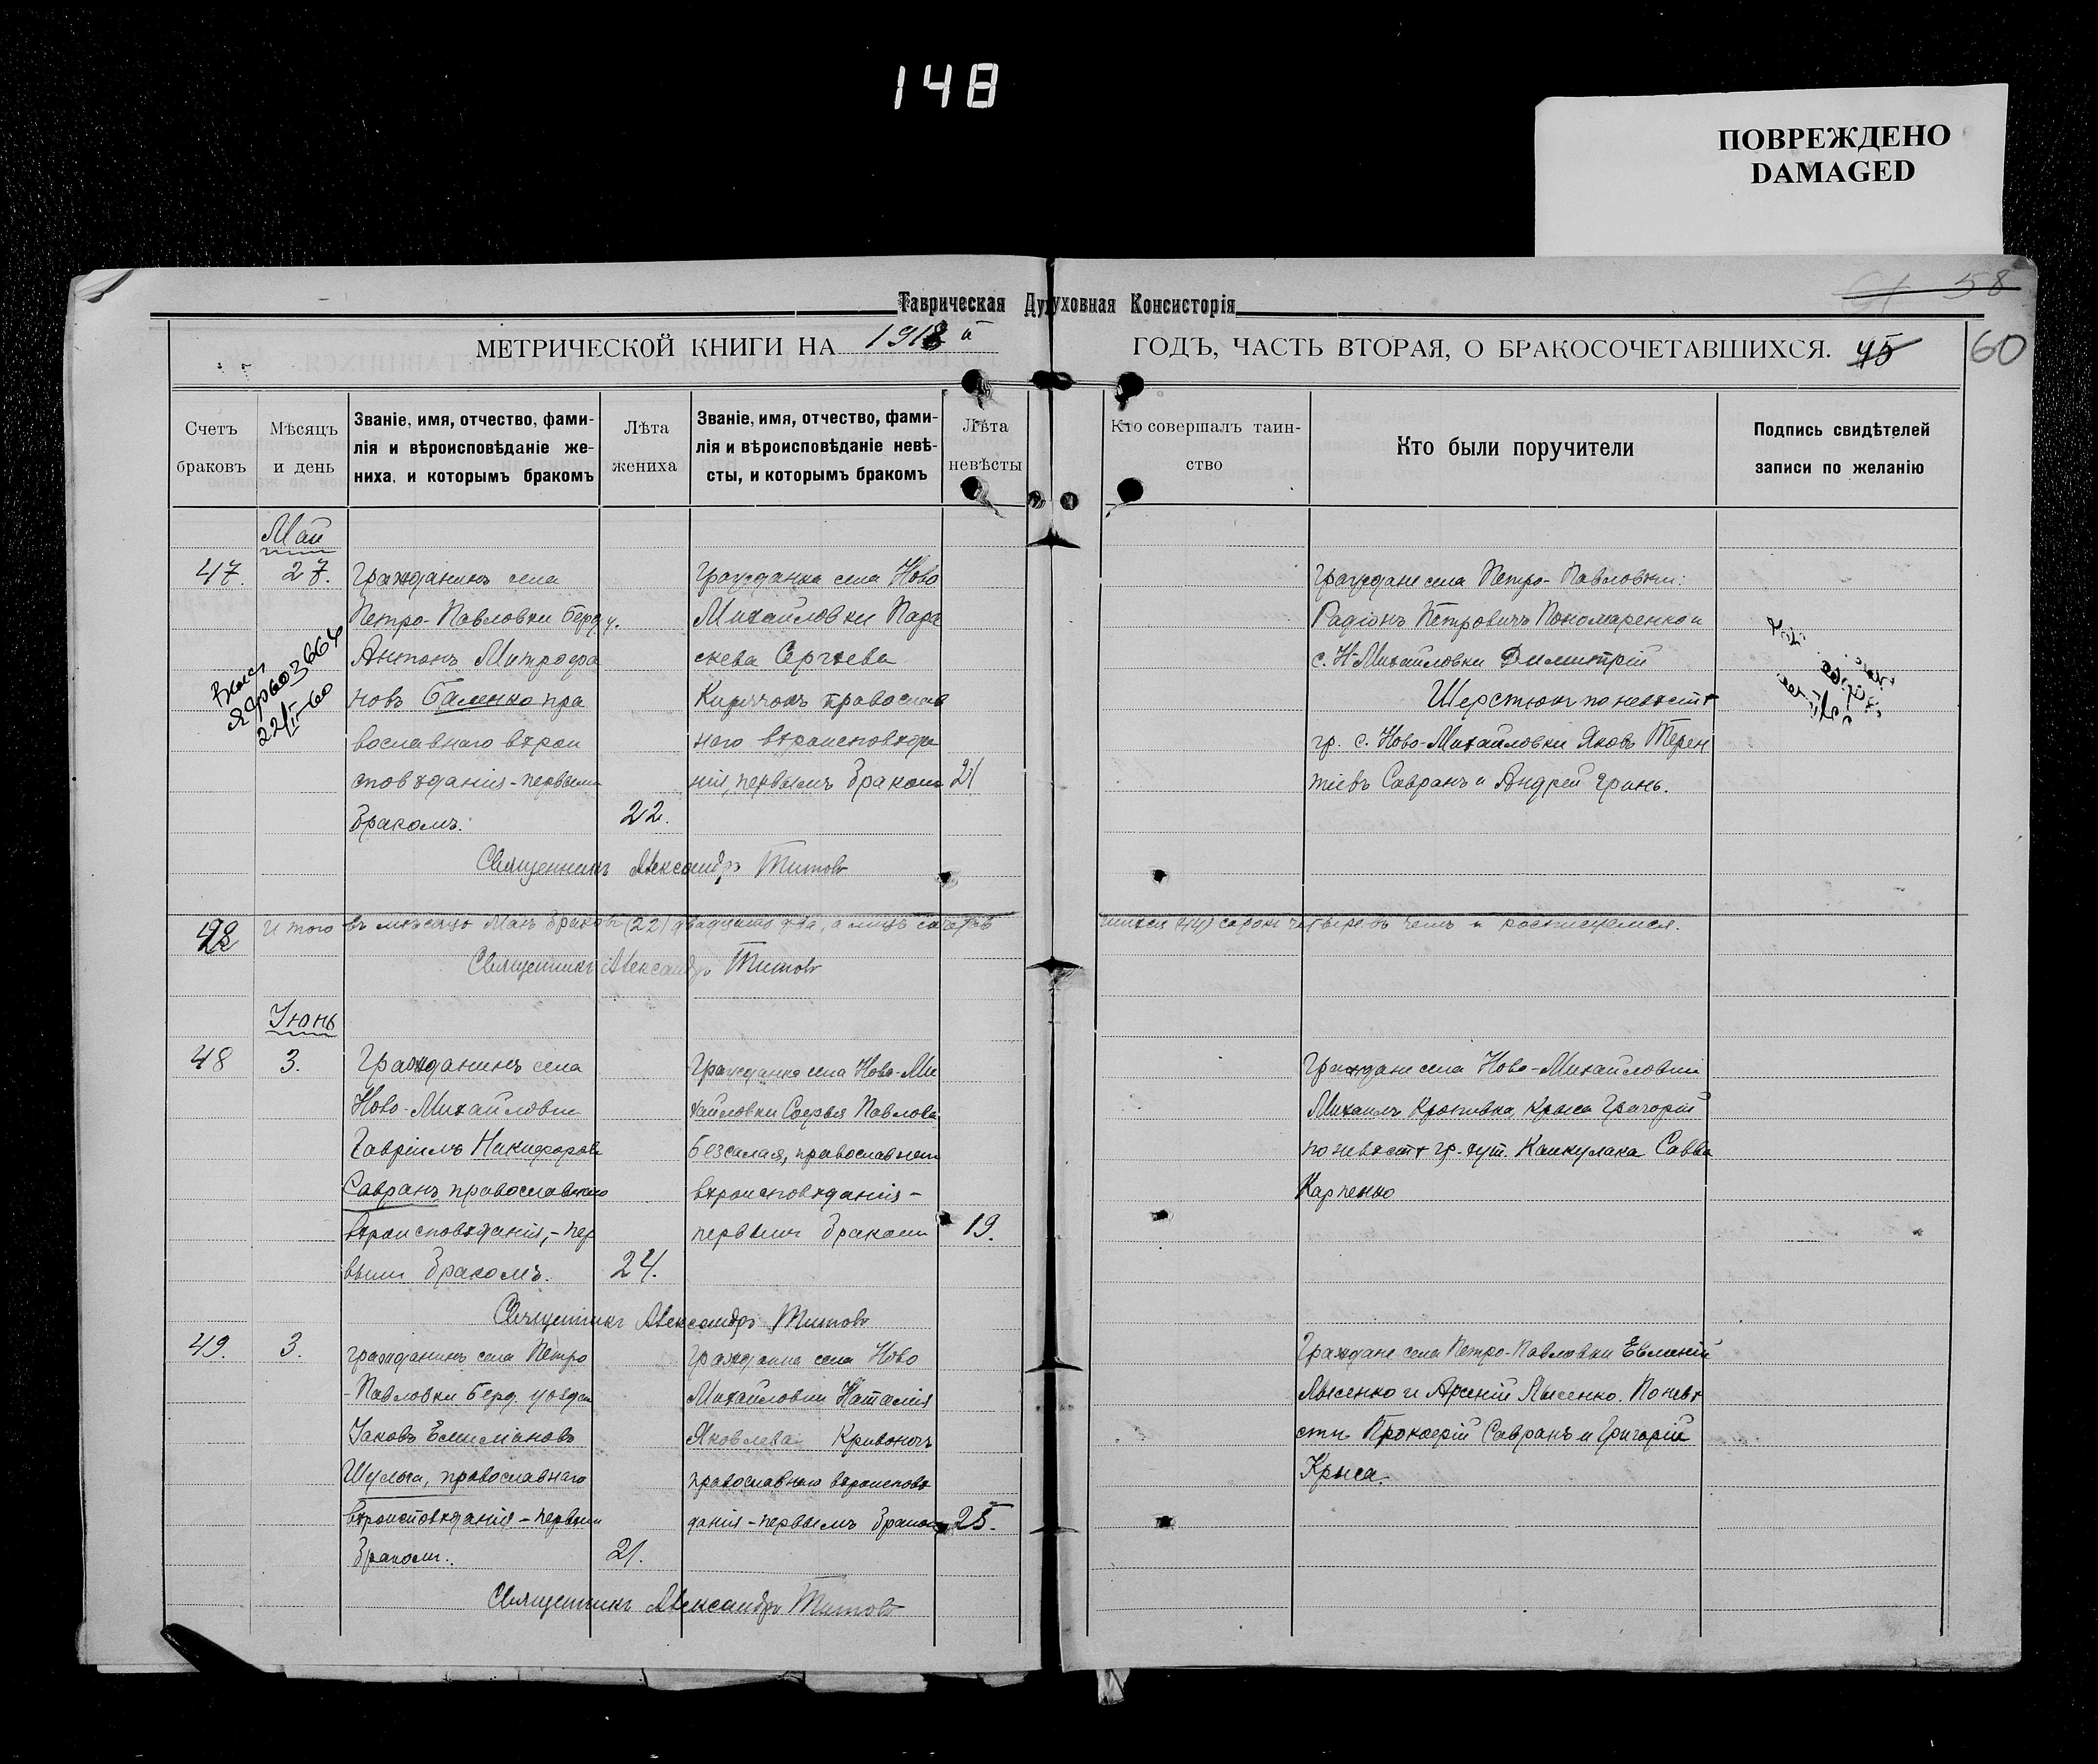 148
ПОВРЕЖДЕНО
DAMAGED
58
Таврическая Духовная Консисторія
МЕТРИЧЕСКОЙ КНИГИ НА 1918 й ГОДЪ, ЧАСТЬ ВТОРАЯ, О БРАКОСОЧЕТАВШИХСЯ. 45
60
Счетъ браковъ
Мѣсяцъ и день
Званіе, имя, отчество, фами-
лія и вѣроисповѣданіе же-
ниха, и которымъ бракомъ
Лѣта жениха
Званіе, имя, отчество, фами-
лія и вѣроисповѣданіе невѣ-
сты, и которымъ бракомъ
Лѣта невѣсты
Кто совершалъ таин-
ство
Кто были поручители
Подпись свидѣтелей
записи по желанію
Май
47.
27.
Гражданинъ села
Петро-Павловки Берд. у.
Антонъ Митрофа
новъ Баленко пра
вославнаго вѣрои
сповѣданія - первымъ
бракомъ.
22.
Гражданка села Ново
Михайловки Пара
скева Сергѣева
православ
наго вѣроисповѣда
нія, первымъ бракомъ
21
Граждане села Петро-Павловки:
Радіонъ Петровичъ Пономаренко и
с. Н-Михайловки Димитрій
Шерстюкъ по невѣстѣ
гр. с. Ново-Михайловки Яковъ Терен
тіевъ Савранъ и Андрей Гринь.
22/II-60
Священникъ Александръ Титовъ
Итого въ мѣсяцѣ Маѣ браковъ (22) двадцать два, а лицъ сочетав
шихся (44) сорокъ четыре въ чемъ и росписуемся.
Священникъ Александръ Титовъ
Іюнь
48
3.
Гражданинъ села
Ново-Михайловки
Гавріилъ Никифоровъ
Савранъ православнаго
вѣроисповѣданія, - пер
вымъ бракомъ.
24.
Гражданка села Ново-Ми
хайловки Софья Павлова
Безсалая, православнаго
вѣроисповѣданія -
первымъ бракомъ
19.
Граждане села Ново-Михайловки
Михаилъ Кропивка, Крыса Григорій
по невѣстѣ гр. хут. Канкулака Савва
Карпенко
Священникъ Александръ Титовъ
49.
3.
Гражданинъ села Петро
-Павловки Берд. уѣзда
Іаковъ
Шулыга, православнаго
вѣроисповѣданія - первымъ
бракомъ.
21.
Гражданка села Ново
Михайловки Наталія
Яковлева Кривоносъ
православнаго вѣроисповѣ
данія - первымъ бракомъ
25.
Граждане села Петро-Павловки Евгеній
Лысенко и Арсеній Лысенко. По невѣ
стѣ Прокофій Савранъ и Григорій
Крыса.
Священникъ Александръ Титовъ